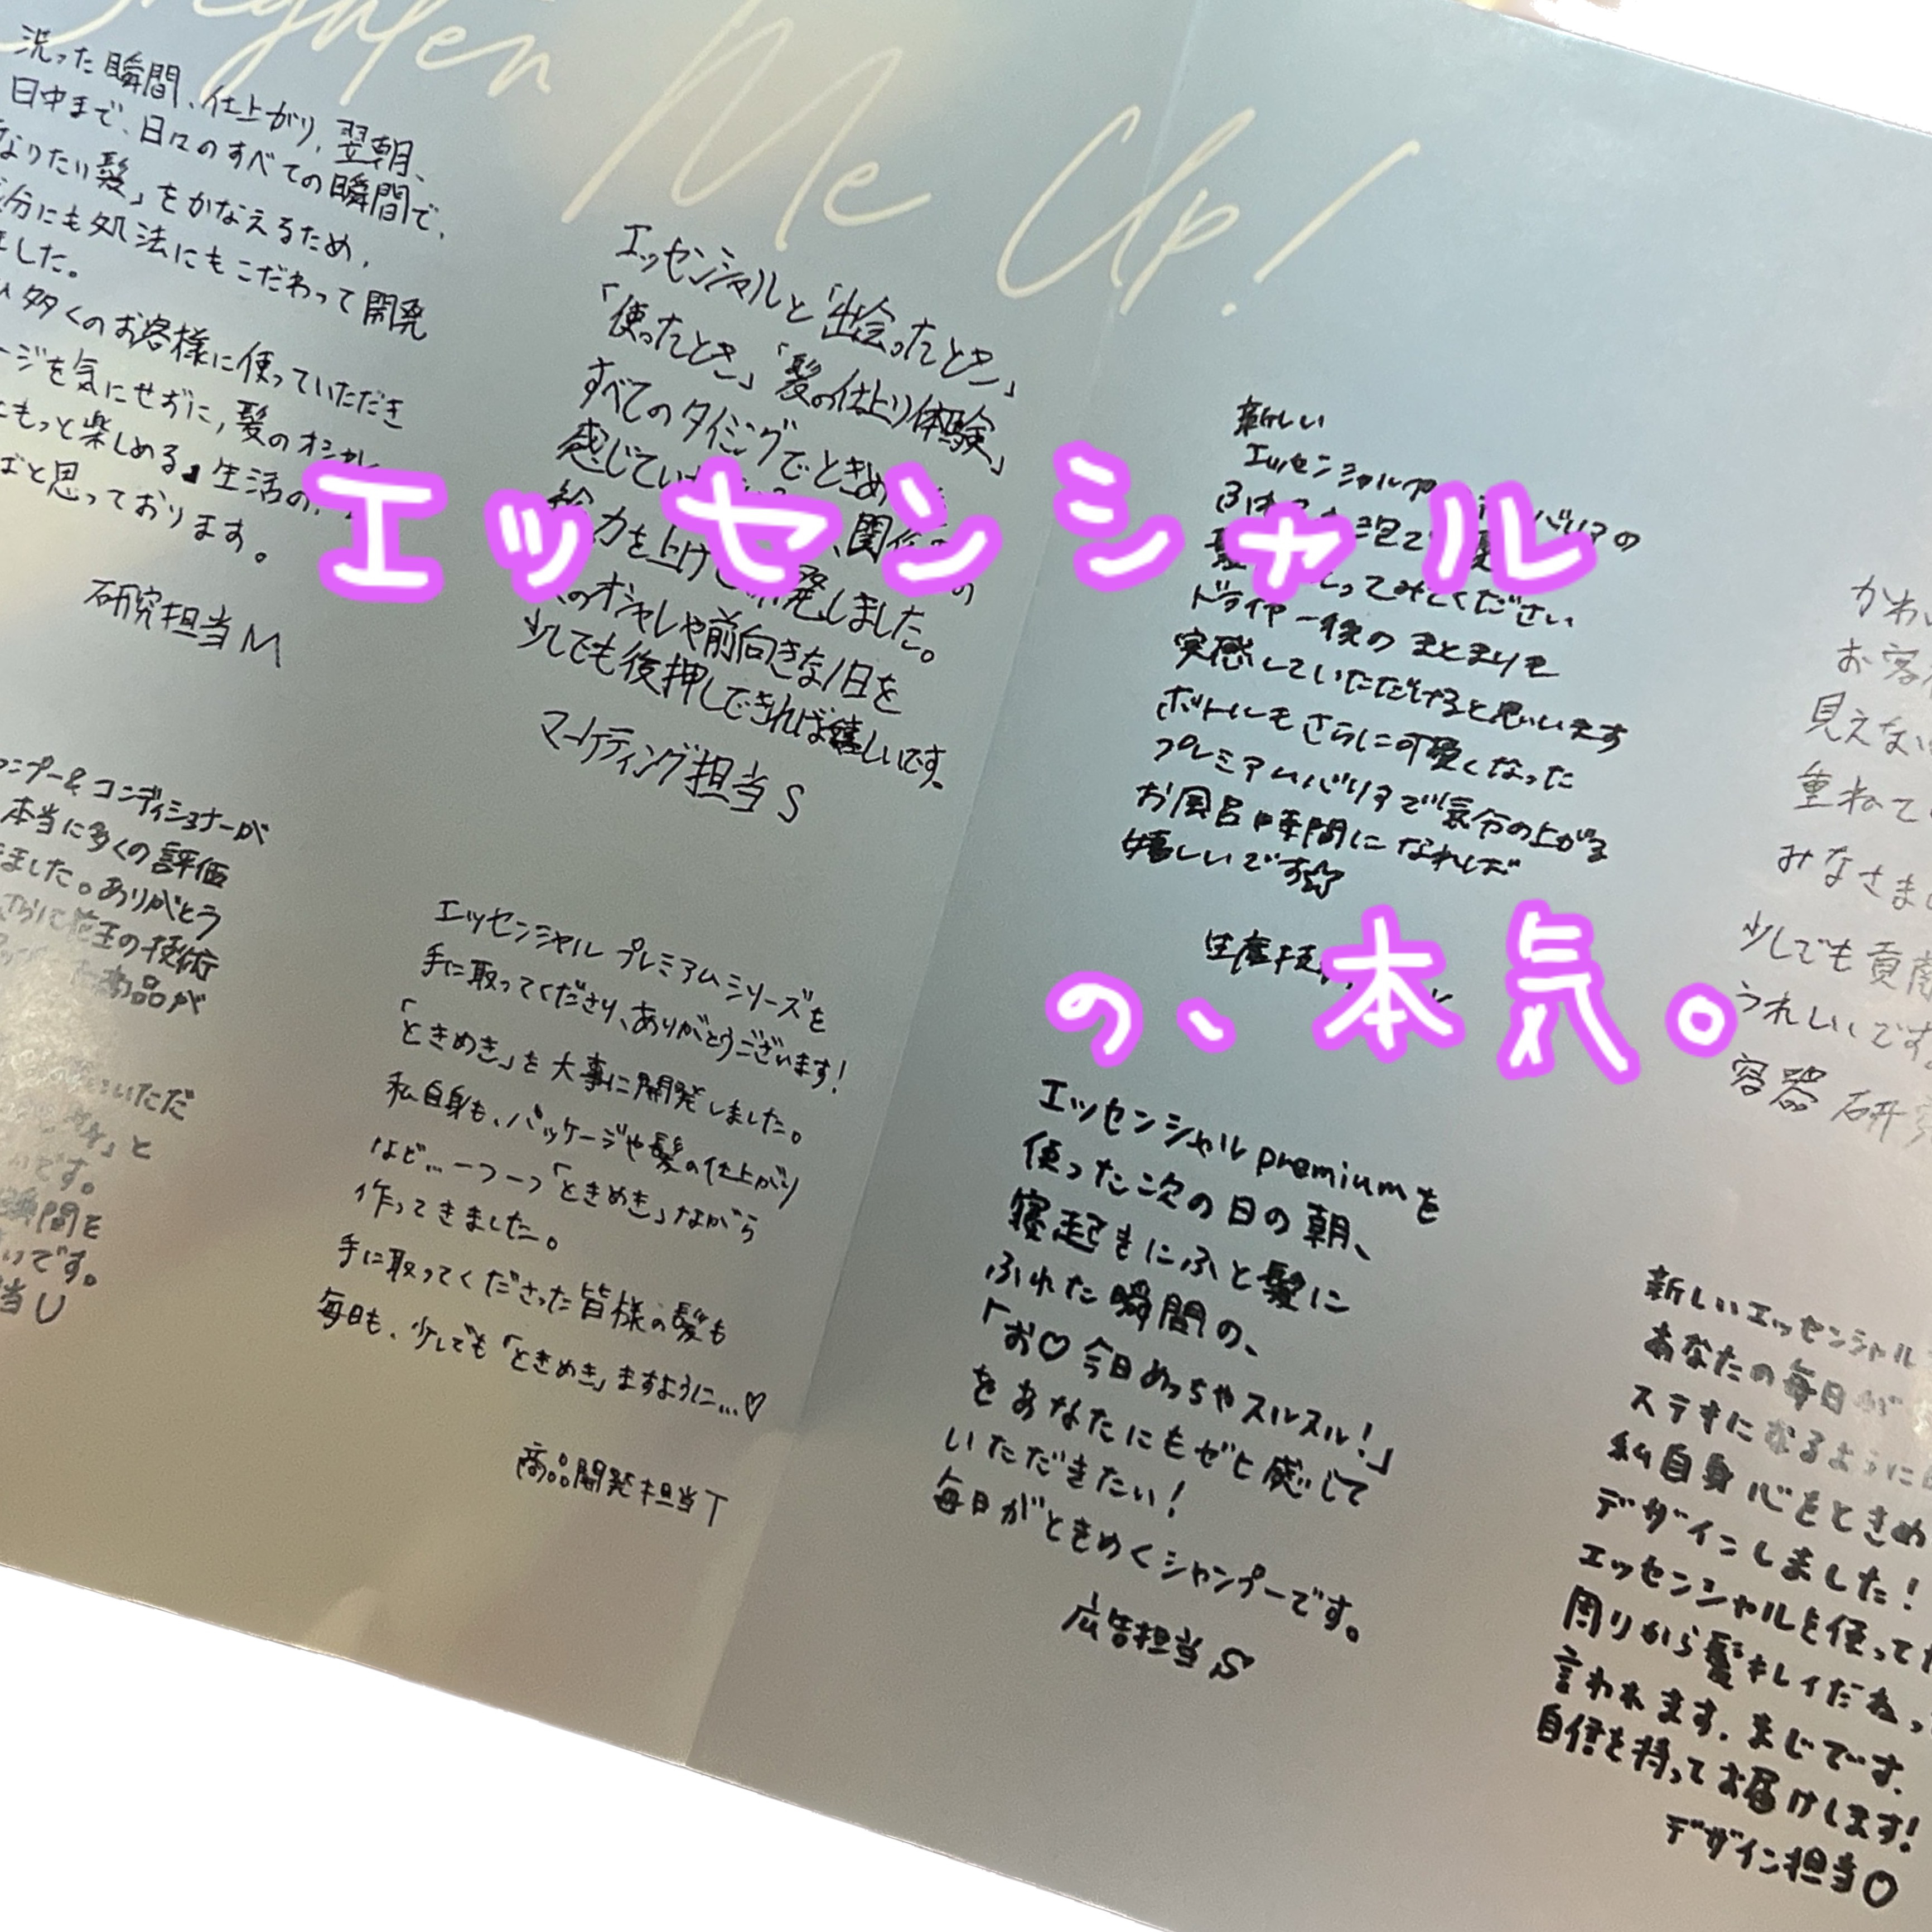 Me Up!
洗った瞬間、仕上がり、翌朝、
日中まで、日々のすべての瞬間で、
なりたい髪」をかなえるため、
分にも処法にもこだわって開発
ました。
多くのお客様に使っていただき
ージを気にせずに、髪のオシャレ
もっと楽しめる』生活の
ばと思っております。
研究担当M
エッセンシャルと「出会ったとき」
「使ったとき」「髪の仕上り体験」
すべてのタイミングでときめ
感じてい
力を上げ 開発しました。
のオシャレや前向きな1日を
少しでも後押しできれば嬉しいです。
マーケティング担当S
新しい
エッセンシャル バリアの
ってみてください
ドライヤー後のまとまりを
実感していただけると思います
ボトルもさらに可愛くなった
プレミアムバリアで気分の上がる
お風呂時間になれば
嬉しいです☆
生産技
かわい
お客
見えない
重ねて
みなさま
少しでも貢献
うれしいです
容器研究
エッセンシャル
の、本気。
ンプー&コンディショナーが
本当に多くの評価
ました。ありがとう
花王の技術
商品が
いただ
と
です。
瞬間を
いです。
当U
エッセンシャル プレミアムシリーズを
手に取ってくださり、ありがとうございます!
「ときめき」を大事に開発しました。
私自身も、パッケージや髪の仕上がり
など…一つ一つ「ときめき」ながら
作ってきました。
手に取ってくださった皆様の髪も
毎日も、少しでも「ときめき」ますように…♡
商品開発担当T
エッセンシャルpremiumを
使った次の日の朝、
寝起きにふと髪に
ふれた瞬間の、
「お♡今日めっちゃスルスル!」
をあなたにもゼヒ感じて
いただきたい!
毎日がときめくシャンプーです。
広告担当S
新しいエッセンシャル
あなたの毎日が
ステキになるように
私自身心をときめ
デザインしました!
エッセンシャルを使って
周りから髪キレイだねっ
言われます。まじです。
自信を持ってお届けします!
デザイン担当O